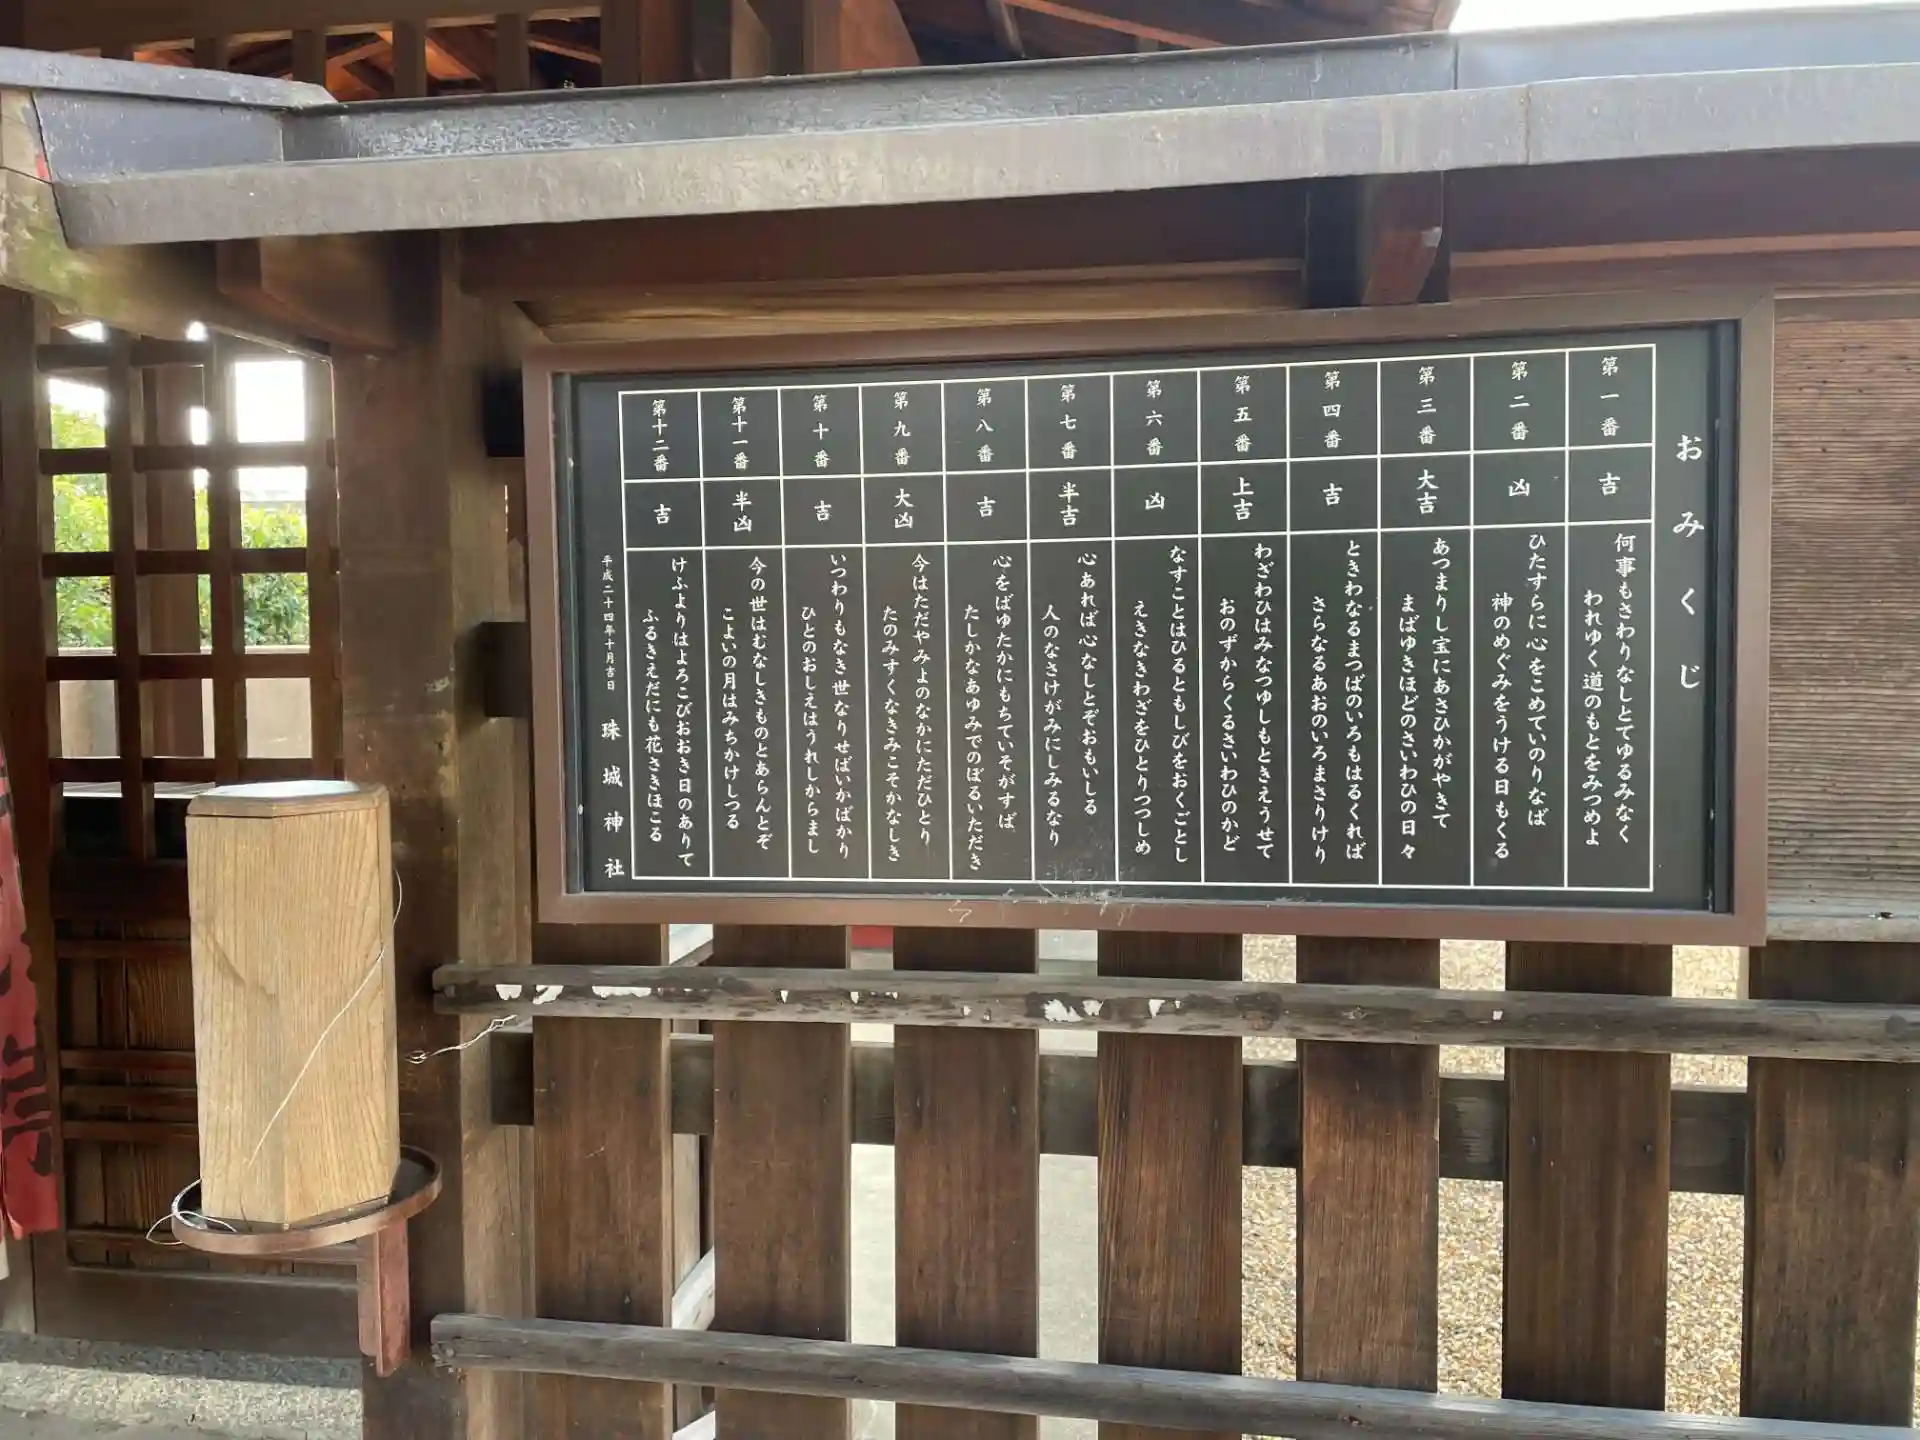 おみくじ
第一番
吉
何事もさわりなしとてゆるみなく
われゆく道のもとをみつめよ
第二番
凶
ひたすらに心をこめていのりなば
神のめぐみをうける日もくる
第三番
大吉
あつまりし宝にあさひかがやきて
まばゆきほどのさいわひの日々
第四番
吉
ときわなるまつばのいろもはるくれば
さらなるあおのいろまさりけり
第五番
上吉
わざわひはみなつゆしもときえうせて
おのずからくるさいわひのかど
第六番
凶
なすことはひるともしびをおくごとし
えきなきわざをひとりつつしめ
第七番
半吉
心あれば心なしとぞおもいしる
人のなさけがみにしみるなり
第八番
吉
心をばゆたかにもちていそがすば
たしかなあゆみでのぼるいただき
第九番
大凶
今はただやみよのなかにただひとり
たのみすくなきみこそかなしき
第十番
吉
いつわりもなき世なりせばいかばかり
ひとのおしえはうれしからまし
第十一番
半凶
今の世はむなしきものとあらんとぞ
こよいの月はみちかけしつる
第十二番
吉
けふよりはよろこびおおき日のありて
ふるきえだにも花さきほこる
平成二十四年十月吉日
珠城神社